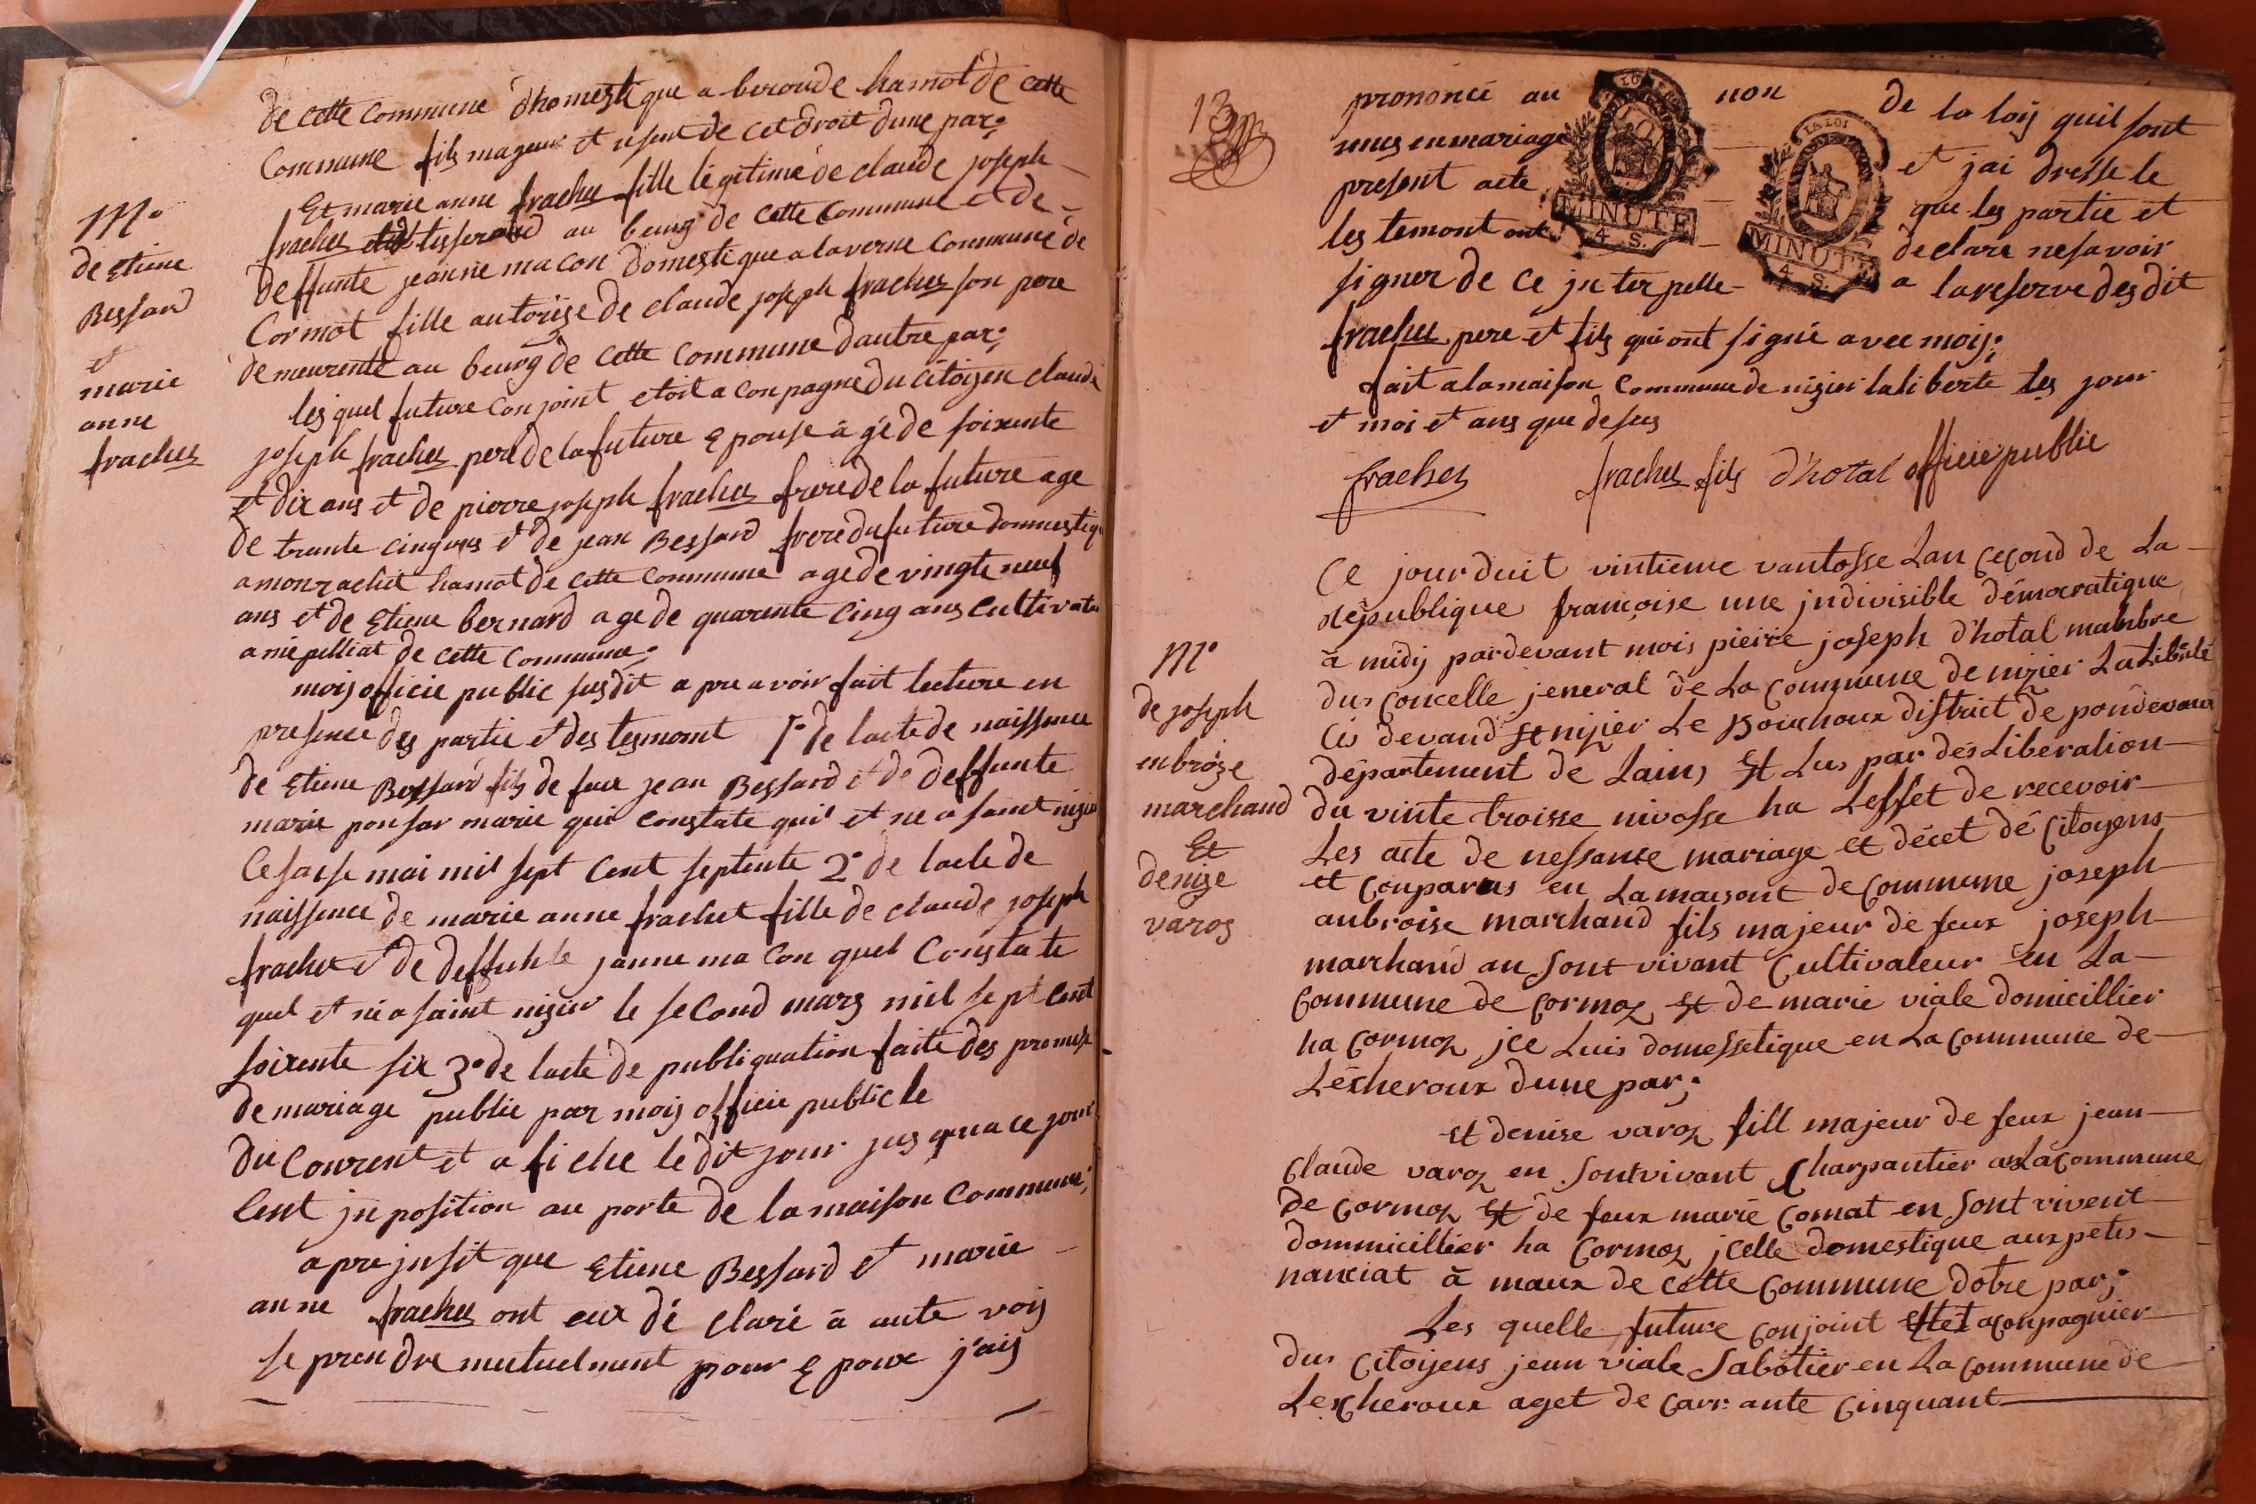 de cette commune dhomestique a beroude hamot de cette
commune fils mageur et usent de cet droit dune par;
Et marie anne frachet fille legitime de claude joseph
frachet tisserand au beurg de cette commune et de
deffunte jeanne macon domestique a laverne commune de
Cormot fille autorise de claude joseph frachet son pere
demeurente au beurg de cette commune dautre par;
les quel future conjoint etoit a conpagne du citoyen claude
joseph frachet pere de la future epouse âgé de soixente
et dix ans et de pierre joseph frachet frere de la future age
de trante cinq ans et de jean Bessard frere du future dommestique
a monrachet hamot de cette commune age de vingte neuf
ans et de Etiene bernard age de quarente cinq ans cultivateur
a nie pelliat de cette commune;
mois officie public susdit a pre avoir fait lecture en
presence des partie et des tesmomt 1° de lacte de naissence
de Etiene Bessard fils de feux jean Bessard et de deffunte
marie ponsar marie qui constate quil et ne a saint nizier
le saise mai mil sept cent septente 2° de lacte de
naissence de marie anne frachet fille de claude joseph
frachet et de deffunte janne macon quel constate
quel et né a saint nizier le second mars mil sept cent
soixente six 3° de lacte de publiquation faite des promese
de mariage public par mois officie public le
du courent et a fiche le dit jour jus qua ce jour
cent jnposition au porte de la maison commune;
apre jnsit que Etiene Bessard et marie
anne frachet ont eux dé claré à aute vois
se prendre mutuelment pour e poux j'ais
M°
de Etiene
Bessard
et
marie
anne
frachet
13
prononcé au non de la loy quil sont
unis en mariage et jai dresse le
present acte que les partie et
les temont ont declare ne savoir
signer de ce jnterpelle a la reserve des dit
frachet pere et fils qui ont signé avec mois;
fait a la maison commune de nizier laliberte les jour
et mois et ans que desus
frachet frachet fils d'hotal officie public
LA LOI
MINUTE
4. S.
LA LOI
MINUTE
4. S.
Ce jourduit vintieme vantosse Lan cecond de La
République françoise une jndivisible démocratique
à midy pardevant mois pierre joseph d'hotal manbre
dus concelle jeneral de La commune de nizier La Liberté
Cis devand St nizier Le Bouchoux district de pondevaux
département de Lains Et Lus par des Liberation
du vinte troisse nivosse ha Leffet de recevoir
Les acte de nessance mariage et décet dé citoyens
et conparus en La maisont de commune joseph
anbroise marchand fils majeur de feux joseph
marchand au sont vivant cultivateur en La
commune de cormoz Et de marie viale domicillier
ha cormoz jce Luis domessetique en La commune de
Lécheroux dune par;
Et denise varoz fill majeur de feux jean
claude varoz en sontvivant charpantier as La commune
de cormoz Et de feux marie comat en sont vivent
dommicillier ha cormoz jcelle domestique aux petis
nanciat à maux de cette commune dotre par;
Les quelle future conjoint Etet aconpagnier
dus citoijens jean viale sabotier en La commune de
Lexcheroux aget de carr ante cinquant
M°
de joseph
enbroze
marchand
Et
denize
varoz